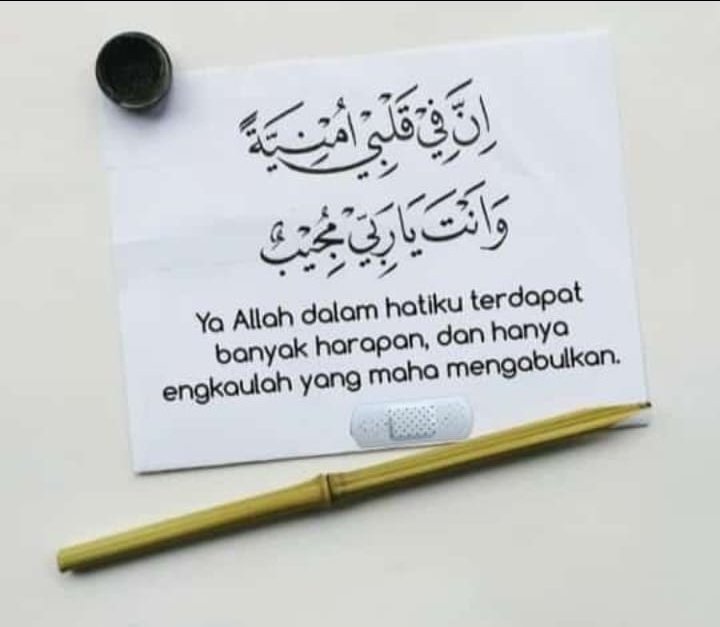 اِنَّ فِيْ قَلْبِيْ اُمْنِيَةً
وَاَنْتَ يَا رَبِيّ مُجِيْبٌ
Ya Allah dalam hatiku terdapat
banyak harapan, dan hanya
engkaulah yang maha mengabulkan.